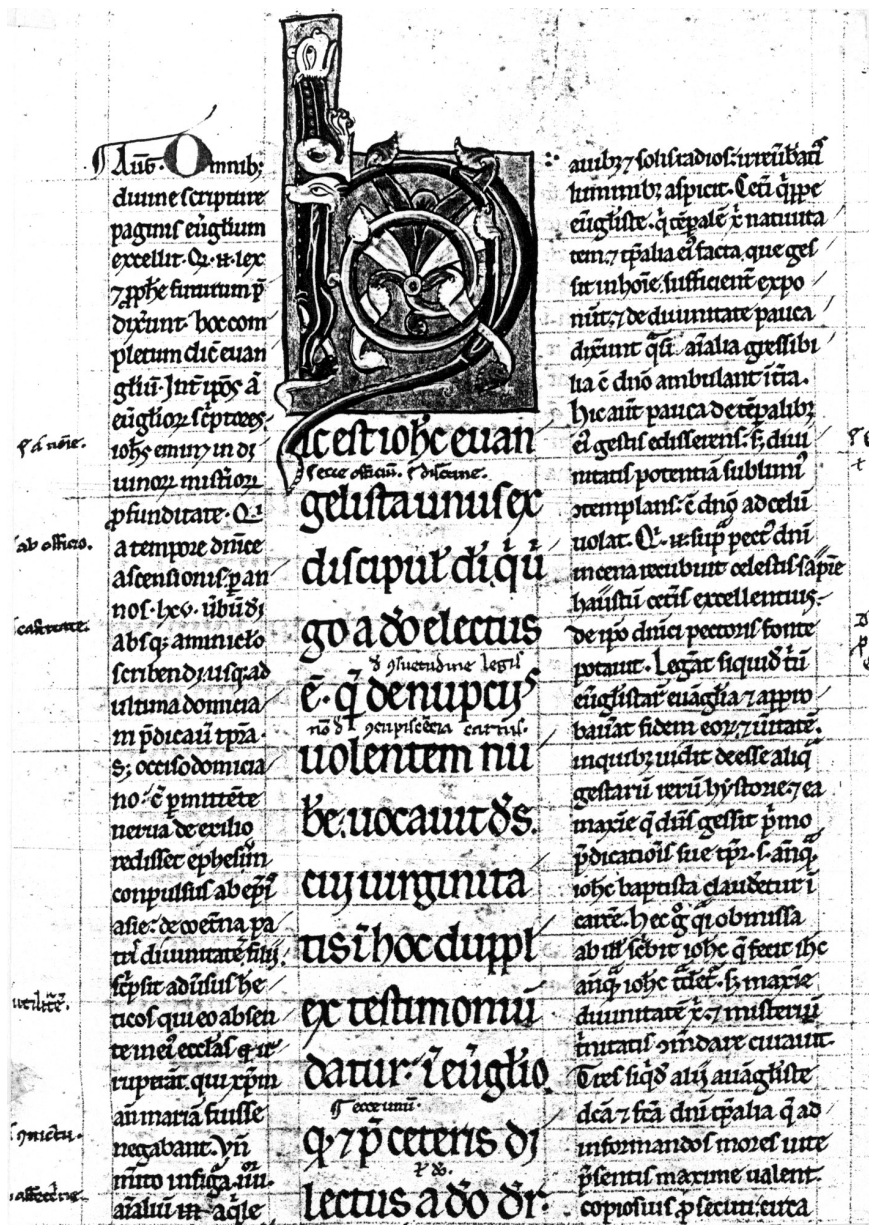 Auḡ. Omnib;
diuine scripture
paginis eūglium
excellit. Qꝛ. n̄. lex
⁊ ꝓph̄e futurum p̄
dixꝛunt. hoc com
pletum dic̄ euan
gliū. Int̄ ip̄os ā
eūglioꝝ sc̄ptores.
ioh̄s emin; in di
uinoꝝ mist̄ioꝝ
ꝓfunditate. Qi
a tempore dn̄ice
ascensionis. ꝑ an
nos .lxv. ūbū di
absq; aminic̄lo
scribendi usq; ad
ultima domicia
ni p̄dicauit tp̄ra.
S; occiso domicia
no. c̄ ꝑmittēte
nerua de exilio
redisset ephesūn
conpulsus ab ep̄i
asie: de coet̄na pa
tri diuinitatē filij.
sc̄psit adūsus he
ticos qui eo absen
te in ei; eccl̄as
ruperāt. qui xp̄m
an̄ mariā fuisse
negabant. Vn̄
m̄ito in figᷓa .iiii.
aīaliū aq̄le
ic est ioh̄s euan
gelista unus ex
discipul̄. di. q̄ ū
go a do electus
ē. q̄ de nupcijs
uolentem nu
b̄e. uocauit ds̄.
cui uirginita
tis ī hoc duppl
ex testimoniū
datur. ī eūglio
q; ⁊ p̄ ceteris di
lectus a do dr̄.
auib; ⁊ solis radios: irreūbatis
luminib; aspicit. Cet̄i q̄ppe
eūgliste. q̄ tēpalē x̄ natiuita
tem. ⁊ tp̄alia ei; facta que ges
sit in hoīe sufficient̄ expo
nūt. ⁊ de diuinitate pauca
dixꝛunt q̄si aīalia gressibi
lia c̄ dn̄o ambulant ī t̄ra.
hic aūt pauca de tēpalib;
ei; gestis edisserens. s; diui
nitatis potentiā sublimi;
ꝯtemplans. c̄ dn̄o ad celū
uolat. Qi. n̄. sup̄ pect; dn̄i
in cena recubuit celestis sapīe
haustū cet̄is excellentius.
de ip̄o dn̄ici pectoris fonte
potauit. Leḡat siquid̄ t̄ū
eūglistaꝝ euāglia ⁊ appro
bauāt fidem eoꝝ. ⁊ ūitatē.
in quib; uidit deesse aliq̄
gestaꝝ rerū hystorie. ⁊ ea
maxīe q̄ dn̄s gessit p̄mo
p̄dicatiōis sue tp̄r. s. ān̄q̄
ioh̄s baptista claudetur ī
carc̄e. Hec ḡ q̄i obmissa
ab ill̄ sc̄bit ioh̄s q̄ fecit ih̄c
ān̄q̄ ioh̄s t̄det̄. s; maxīe
diuinitatē x̄. ⁊ misteriū
t̄nitatis ꝯm̄dare curauit.
Tres siq̄d alij auāgliste
dc̄a ⁊ fc̄a dn̄i tp̄alia q̄ ad
informandos mores uite
p̄sentis maxime ualent.
copiosius ꝑsecuti. circa
ab officio.
castitate.
utilit̄e.